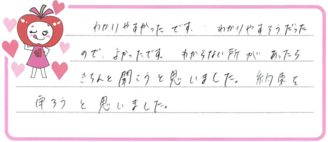 わかりやすかったです。わかりやすそうだった
ので、よかったです。わからない所があったら
きちんと聞こうと思いました。約束を
守ろうと思いました。